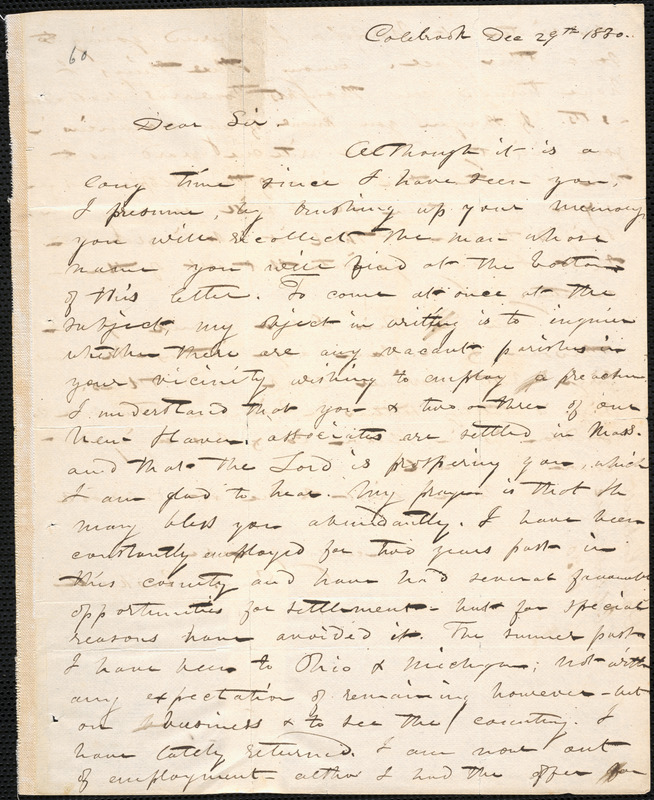 60
Colebrook Dec 29th 1830.
Dear Sir.
Although it is a
long time since I have seen you,
I presume, by brushing up your memory
you will recollect the man whose
name you will find at the bottom
of this letter. To come at once at the
subject, my object in writing is to inquire
whether there are any vacant parishes in
your vicinity wishing to employ a preacher
I understand that you & two or three of our
New Haven associates are settled in Mass.
and that the Lord is prospering you, which
I am glad to hear. My prayer is that he
may bless you abundantly. I have been
constantly employed for two years past in
this county and have had several favourable
opportunities for settlement - but for special
reasons have avoided it. The summer past
I have been to Ohio & Michigan; not with
any expectation of remaining however - but
on business & to see the country. I
have lately returned. I am now out
of employment - altho I had the offer for